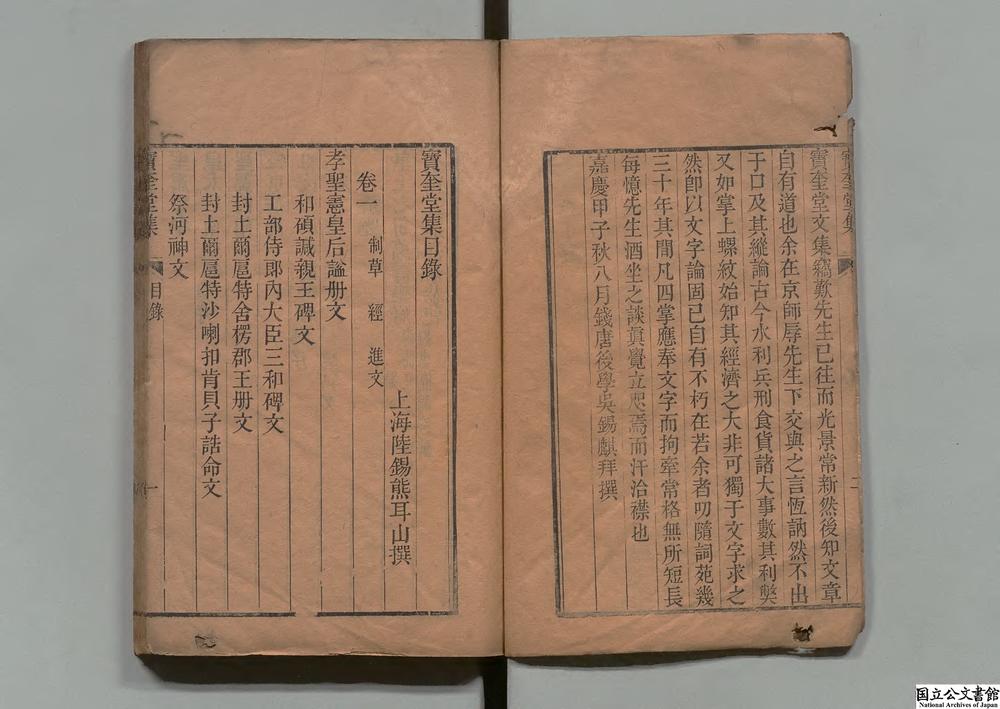 寶奎堂文集竊歎先生已往而光景常新然後知文章
自有道也余在京師辱先生下交與之言恆訥然不出
于口及其縱論古今水利兵刑食貨諸大事數其利獘
又如掌上螺紋始知其經濟之大非可獨于文字求之
然卽以文字論固已自有不朽在若余者叨隨詞苑幾
三十年其閒凡四掌應奉文字而拘牽常格無所短長
每憶先生酒坐之談眞覺立咫焉而汗洽襟也
嘉慶甲子秋八月錢唐後學吳錫麒拜撰
二
寶奎堂集目錄
上海陸錫熊耳山撰
卷一 制草 經 進文
孝聖憲皇后謚册文
和碩諴親王碑文
工部侍郎內大臣三和碑文
封土爾扈特舍楞郡王册文
封土爾扈特沙喇扣肯貝子誥命文
祭河神文
寶奎堂集 目錄 一
国立公文書館
National Archives of Japan